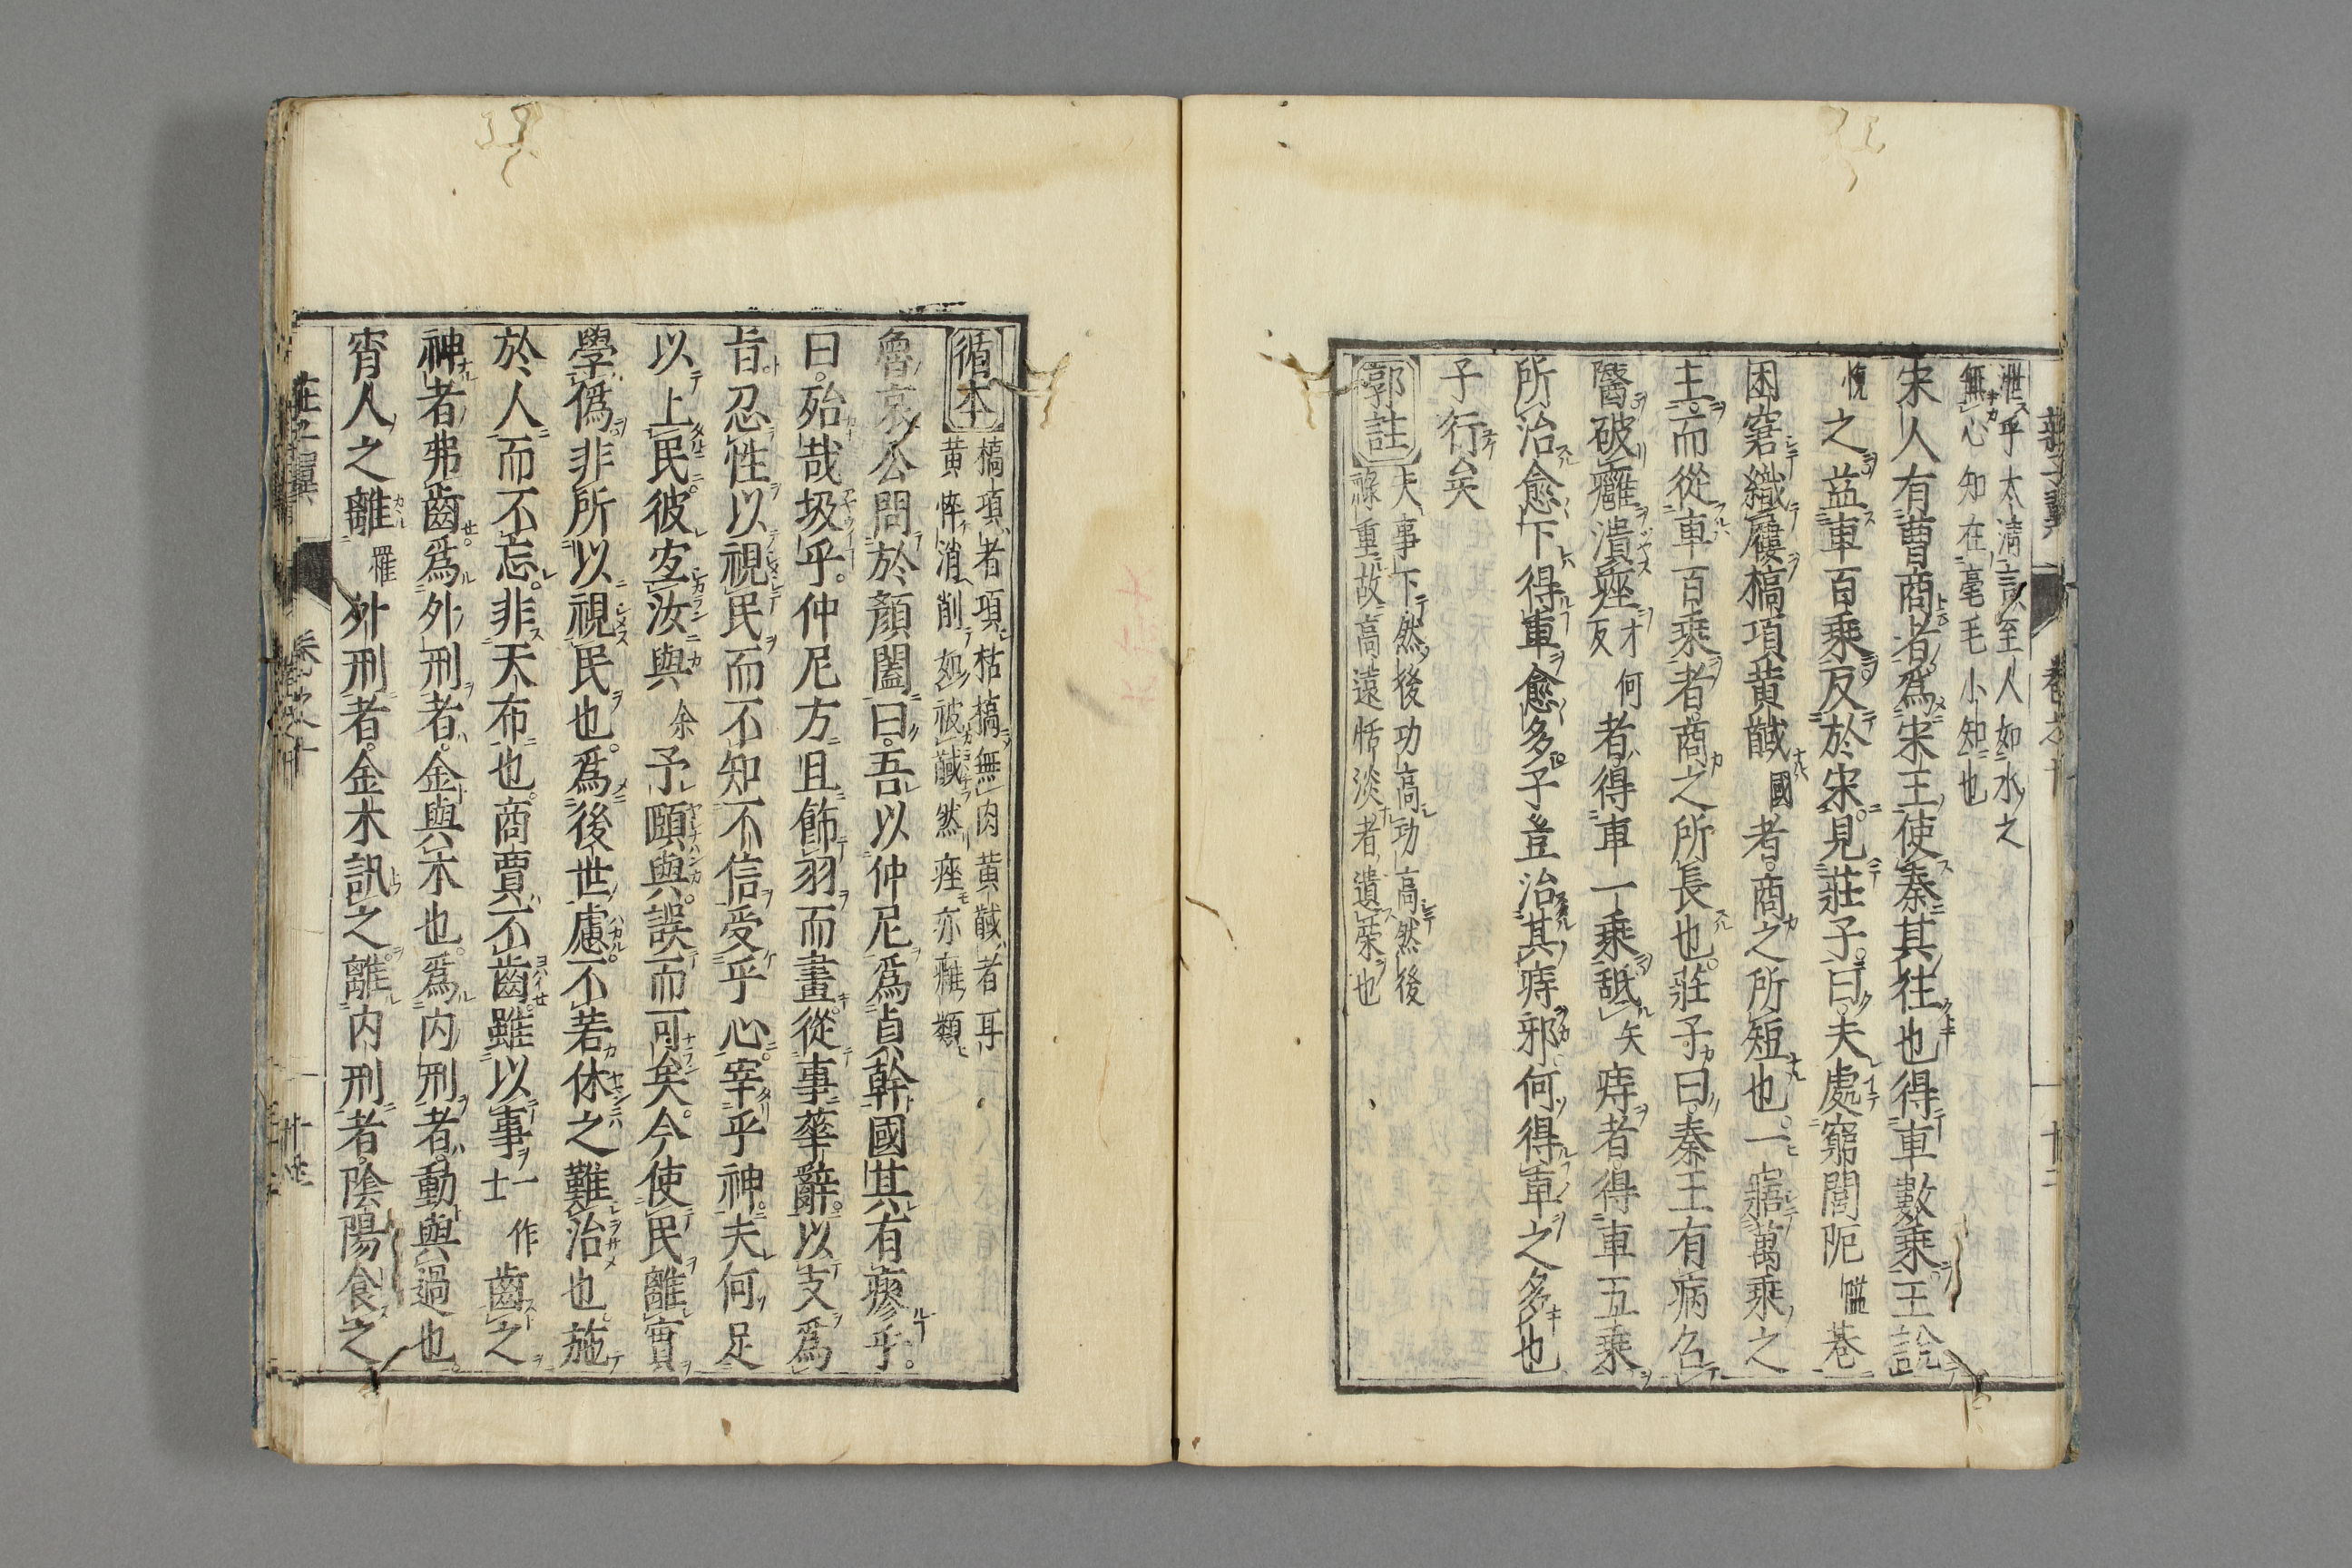 泄乎太清至人如水之
無心知在毫毛小知也
宋人有曹商者爲宋王使秦其往也得車數乘王說
悅之益車百乘反於宋見莊子曰夫處窮閭阨隘巷
困窘織屨槁項黃馘國者商之所短也一寤萬乘之
主而從車百乘者商之所長也莊子曰秦王有病召
醫破癰潰痤才何反者得車一乘舐矢痔者得車五乘
所治愈下得車愈多子豈治其痔邪何得車之多也
子行矣
郭註
夫事下然後功高功高然後
祿重故高遠恬淡者遺榮也
循本
槁項者項枯槁無肉黃馘者耳
黃悴消削如被馘然痤亦癰類
魯哀公問於顏闔曰吾以仲尼爲貞幹國其有瘳乎
曰殆哉圾乎仲尼方且飾羽而畫從事華辭以支爲
旨忍性以視民而不知不信受乎心宰乎神夫何足
以上民彼宜汝與余予頤與誤而可矣今使民離實
學僞非所以視民也爲後世慮不若休之難治也施
於人而不忘非天布也商賈不齒雖以事一作士齒之
神者弗齒爲外刑者金與木也爲內刑者動與過也
宵人之離罹外刑者金木訊之離內刑者陰陽食之
莊子翼